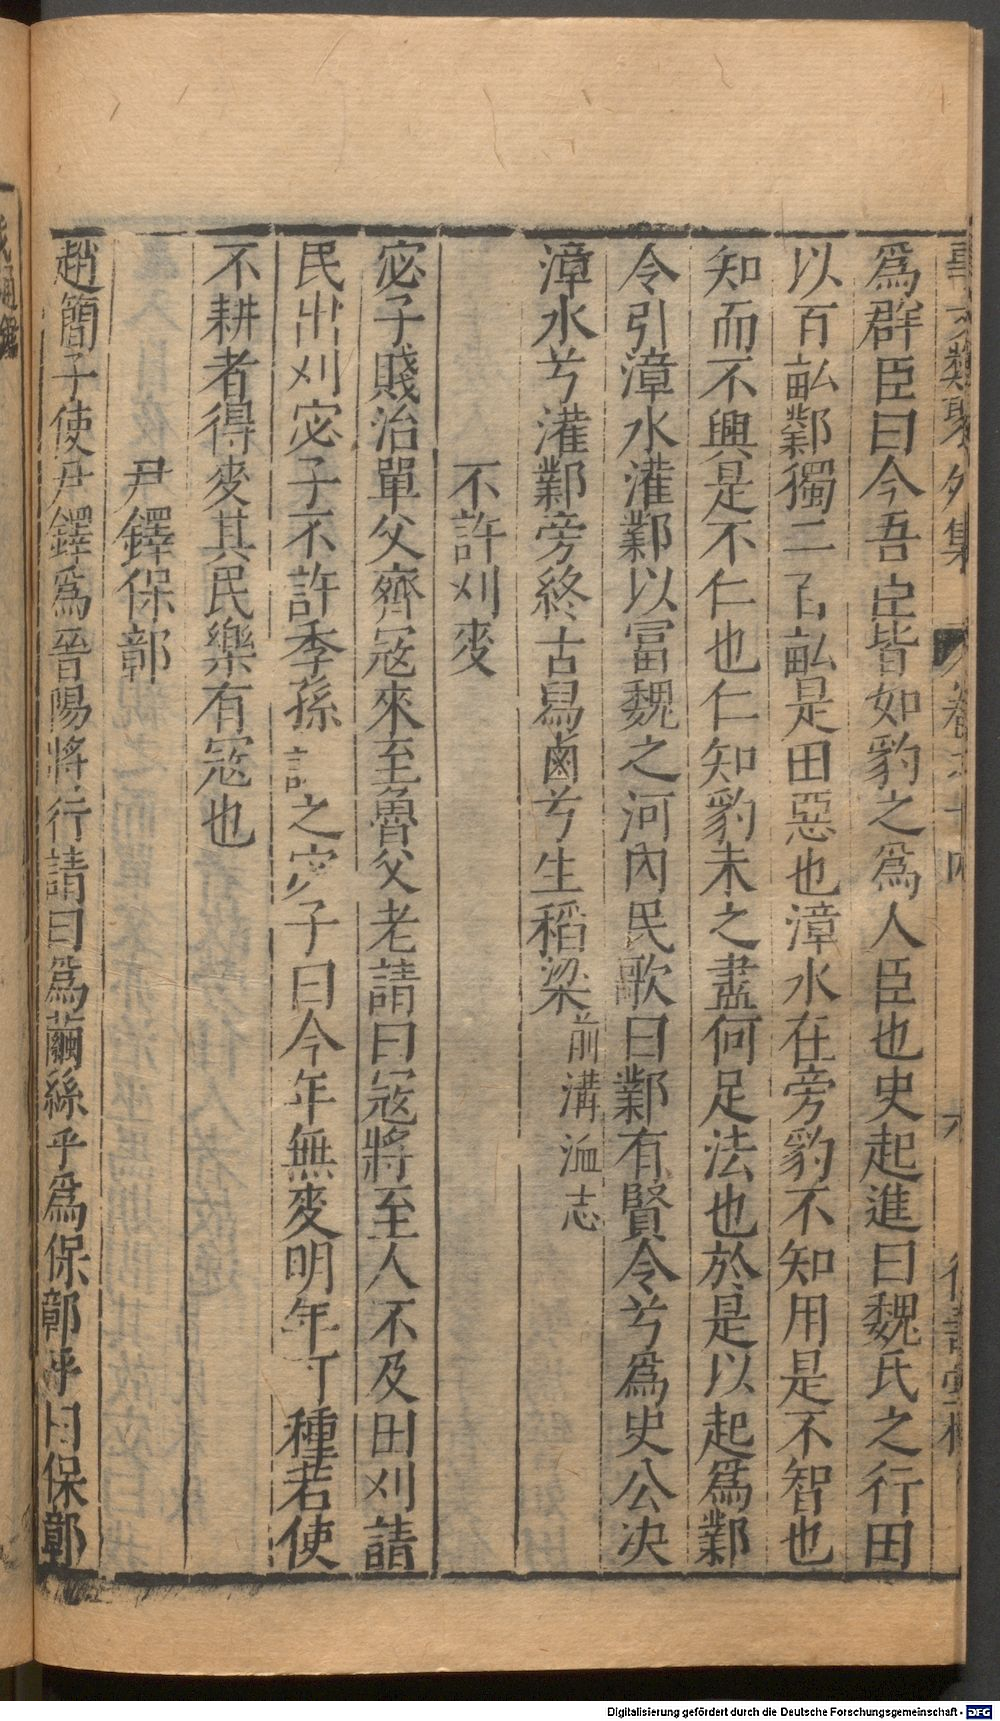 爲群臣曰今吾臣皆如豹之爲人臣也史起進曰魏氏之行田
以百畝鄴獨二百畝是田惡也漳水在旁豹不知用是不智也
知而不興是不仁也仁知豹未之盡何足法也於是以起爲鄴
令引漳水灌鄴以富魏之河內民歌曰鄴有賢令兮爲史公决
漳水兮灌鄴旁終古舄鹵兮生稻梁前溝洫志
不許刈麥
宓子賤治單父齊冦來至魯父老請曰冦將至人不及田刈請
民出刈宓子不許季孫之宓子曰今年無麥明年可種若使
不耕者得麥其民樂有冦也
尹鐸保鄣
趙簡子使尹鐸爲晉陽將行請曰爲繭絲乎爲保鄣乎曰保鄣
Digitalisierung gefördert durch die Deutsche Forschungsgemeinschaft - DFG